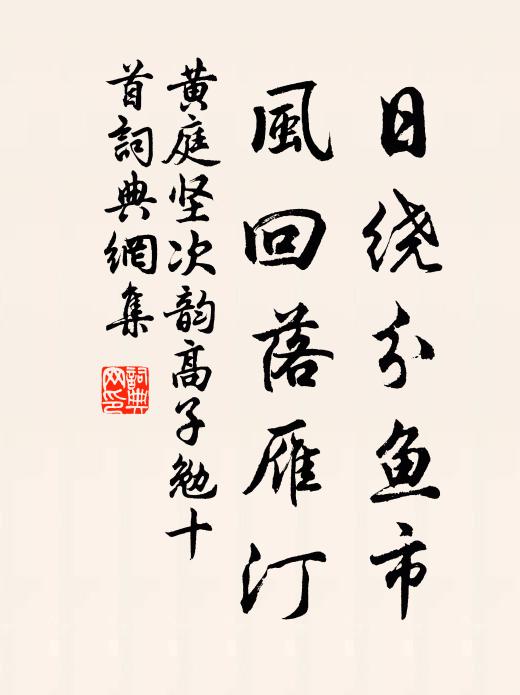 日绕分鱼市
風回落雁汀
黄庭坚次韵高子勉十
首詞典網集
詞典網印